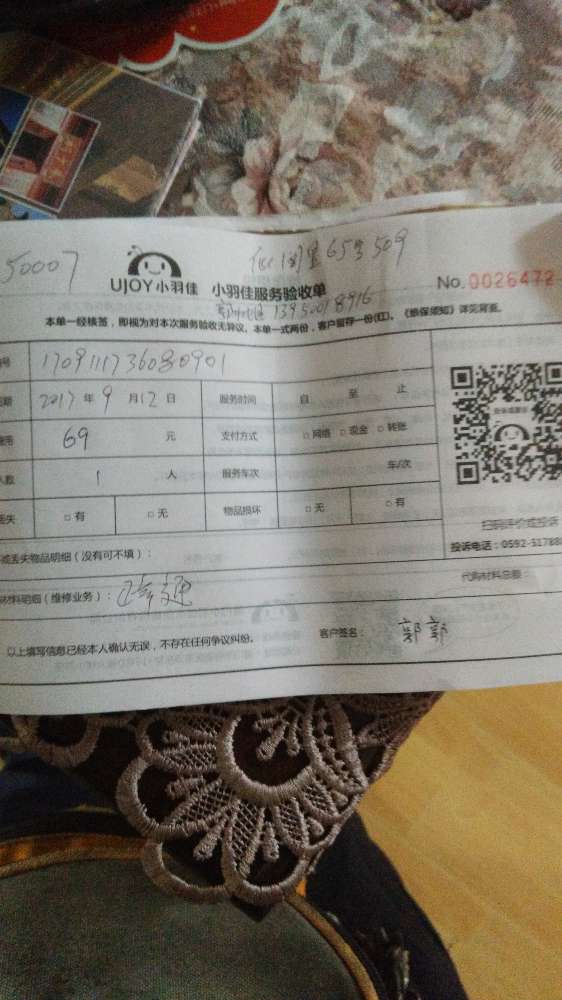 50007
65号509
UJOY小羽佳 小羽佳服务验收单 No.0026472
本单一经核签，即视为对本次服务验收无异议。本单一式两份，客户留存一份(红)。《维保须知》详见背面。
号 1709111736080901
期 2017年9月12日 服务时间 自 至 止
用 69 元 支付方式 □网络 □现金 □转账
人数 1 人 服务车次 车/次
丢失 □有 □无 物品损坏 □无 □有
扫码评价或投诉
投诉电话：0592-51788
或丢失物品明细（没有可不填）：
代购材料总额：
材料明细（维修业务）：
以上填写信息已经本人确认无误，不存在任何争议纠纷。 客户签名：